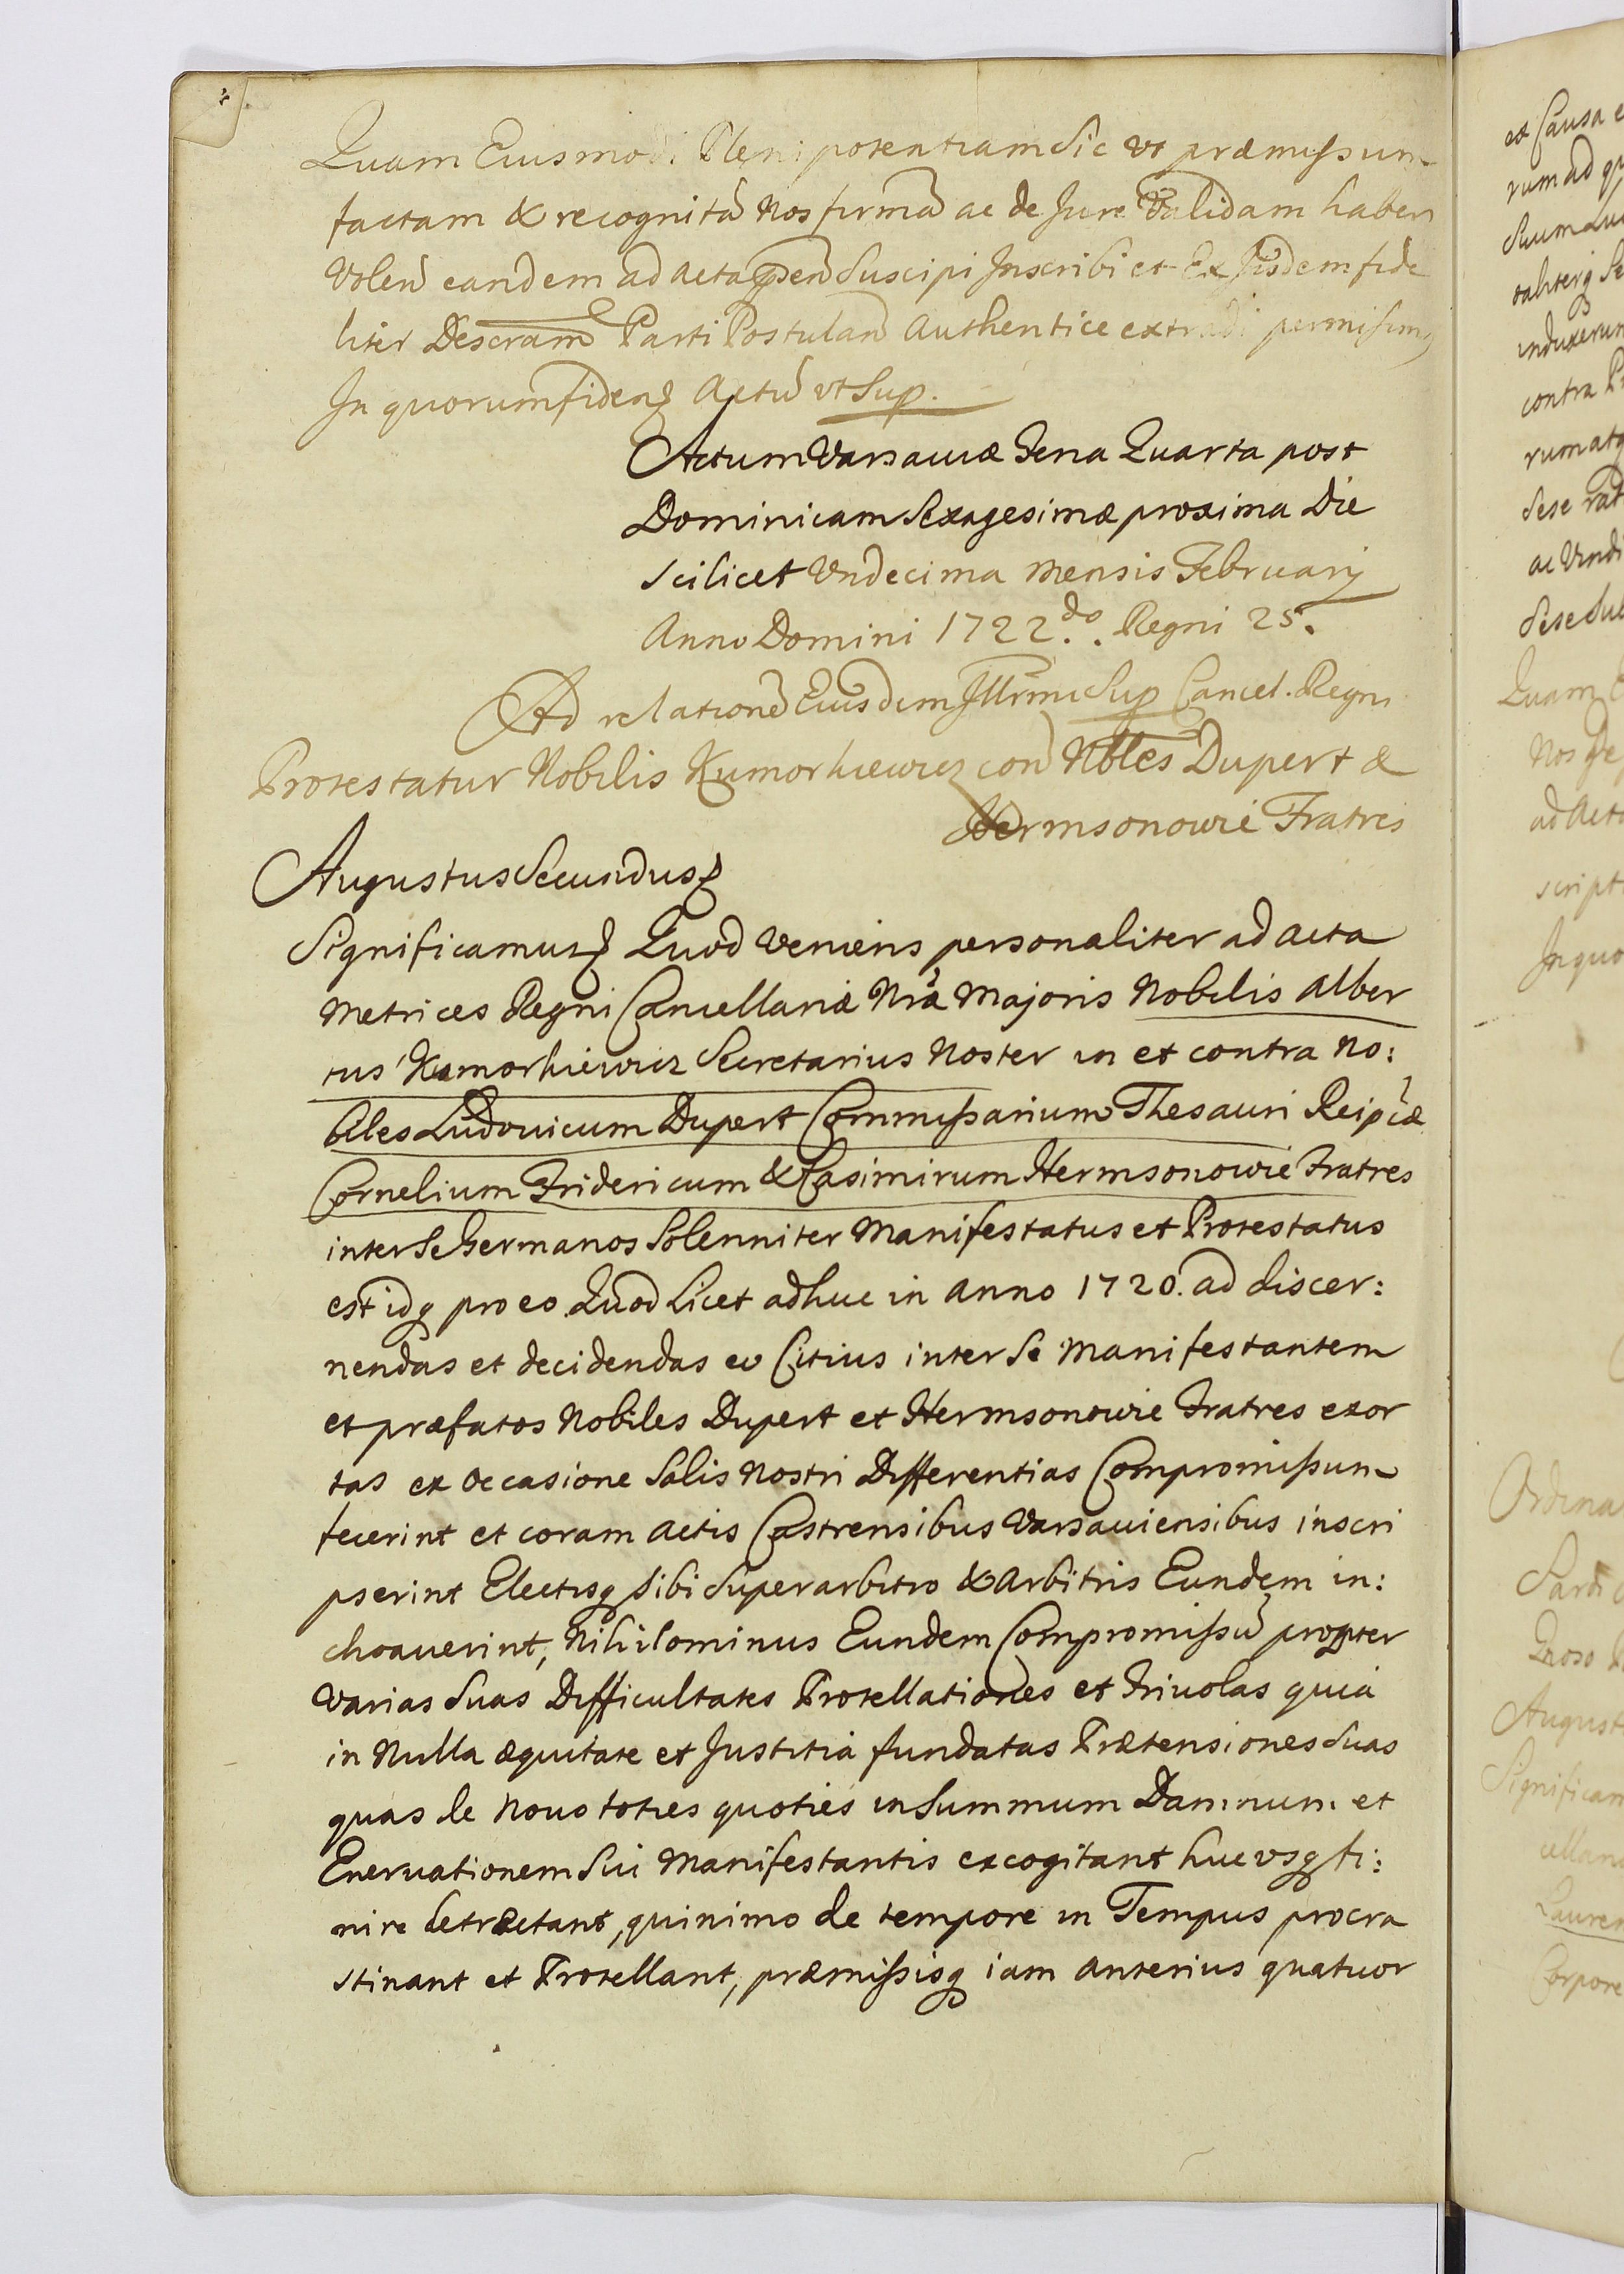 Quam Eiusmodi Plenipotentiam Sic vt præmissum
factam & recognitā Nos firmā ac de Jure Validam habere
Volen̄ eandem ad Acta p̄sen̄ Suscipi Inscribi et Ex Iisdem fide
liter Descram̄ Parti Postulan̄ Authentice extradi permisimꝰ
In quorum fidem Actū vt Sup.
Actum Varsauiæ Feria Quarta post
Dominicam Sexagesimæ proxima Die
Scilicet Vndecima Mensis Februarij
Anno Domini 1722do. Regni 25.
Ad relationē Eiusdem Illrmi Sup Cancel. Regni
Protestatur Nobilis Kumorkiewicz con Nbles Dupert &
Hermsonowie Fratres
Augustus Secundus
Significamus Quod Veniens personaliter ad Acta
Metrices Regni Cancellariæ Nræ Majoris Nobilis Alber
tus Kumorkiewicz Secretarius Noster in et contra No:
biles Ludouicum Dupert Commissarium Thesauri Reipcæ
Cornelium Fridericum & Casimirum Hermsonowie Fratres
inter Se Germanos Solenniter Manifestatus et Protestatus
est idq pro eo Quod Licet adhuc in Anno 1720. ad discer:
nendas et decidendas eo Citius inter Se Manifestantem
et præfatos Nobiles Dupert et Hermsonowie Fratres exor
tas ex Occasione Salis Nostri Differentias Compromissum
fecerint et coram Actis Castrensibus Varsauiensibus inscri
pserint Electisq Sibi Superarbitro & Arbitris Eundem in:
choauerint, Nihilominus Eundem Compromissū propter
Varias Suas Difficultates Protellationes et Friuolas quia
in Nulla æquitate et Justitia fundatas Prætensiones Suas
quas de Nouo toties quoties in Summum Damnum et
Eneruationem Sui Manifestantis excogitant huc vsq fi:
nire detrectant, quinimo de tempore in Tempus procra
stinant et Protellant, præmissisq iam anterius quatuor
ex Causa
rum ad
Suum
induxerun
contra
Sese
ac Vindi
Sese Sub
Quam
Nos
ad Acta
script
In quo
Ordina
August
Significam
cellari
Lauren
Corpore